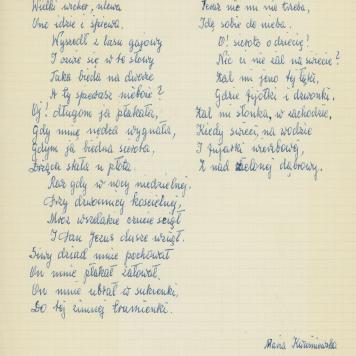 Wielki wicher, ulewa
Ono idzie i śpiewa.
Wyszedł z lasu gajowy
I ozwie się w te słowy
Taka bieda na dworze
A ty śpiewasz nieboże?
Oj! długom ja płakała,
Gdy mnie nędza wygnała,
Gdym ja biedna sierota,
Drżąca stała u płota.
Raz gdy w nocy niedzielnej,
Przy dzwonnicy kościelnej,
Mróz wszelakie czucie ściął
I Pan Jezus duszę wziął.
Siwy dziad mnie pochował
On mnie płakał żałował.
On mnie ubrał w sukienki,
Do tej zimnej trumienki.
Teraz nic mi nie trzeba,
Idę sobie do nieba.
O! sieroto o dziecię!
Nic ci nie żal na świecie?
Żal mi jeno tej łąki,
Gdzie fijołki i dzwonki.
Żal mi słonka, w zachodzie,
Kiedy świeci, na wodzie
I fujarki wierzbowej,
Z nad zielonej dąbrowy.
Maria